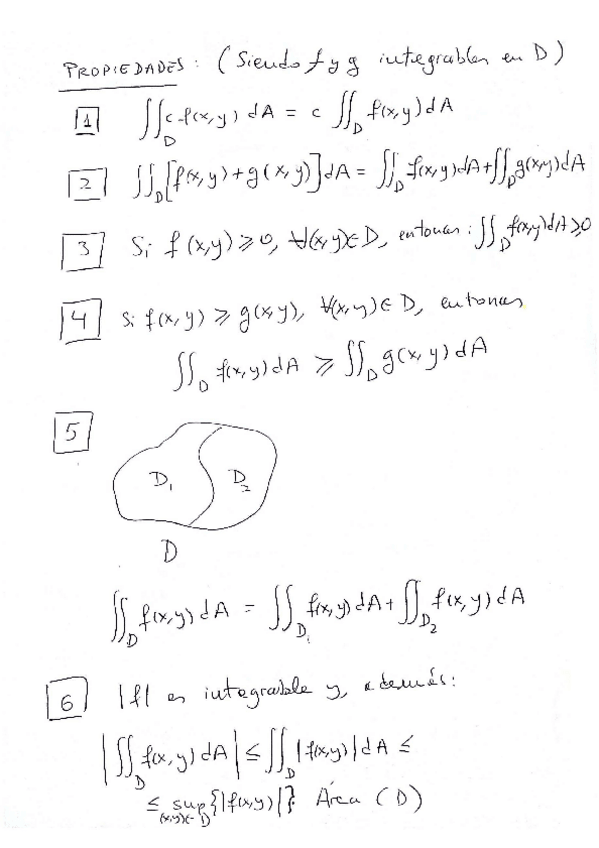 PROPIEDADES: (Siendo f y g integrables en D)
1 ∬_D c f(x,y) dA = c ∬_D f(x,y) dA
2 ∬_D [f(x,y) + g(x,y)] dA = ∬_D f(x,y) dA + ∬_D g(x,y) dA
3 Si f(x,y) ≥ 0, ∀(x,y) ∈ D, entonces: ∬_D f(x,y) dA ≥ 0
4 Si f(x,y) ≥ g(x,y), ∀(x,y) ∈ D, entonces
∬_D f(x,y) dA ≥ ∬_D g(x,y) dA
5
D₁ D₂
D
∬_D f(x,y) dA = ∬_D₁ f(x,y) dA + ∬_D₂ f(x,y) dA
6 |f| es integrable y, además:
|∬_D f(x,y) dA| ≤ ∬_D |f(x,y)| dA ≤
≤ sup_{(x,y)∈D} {|f(x,y)|} · Área (D)